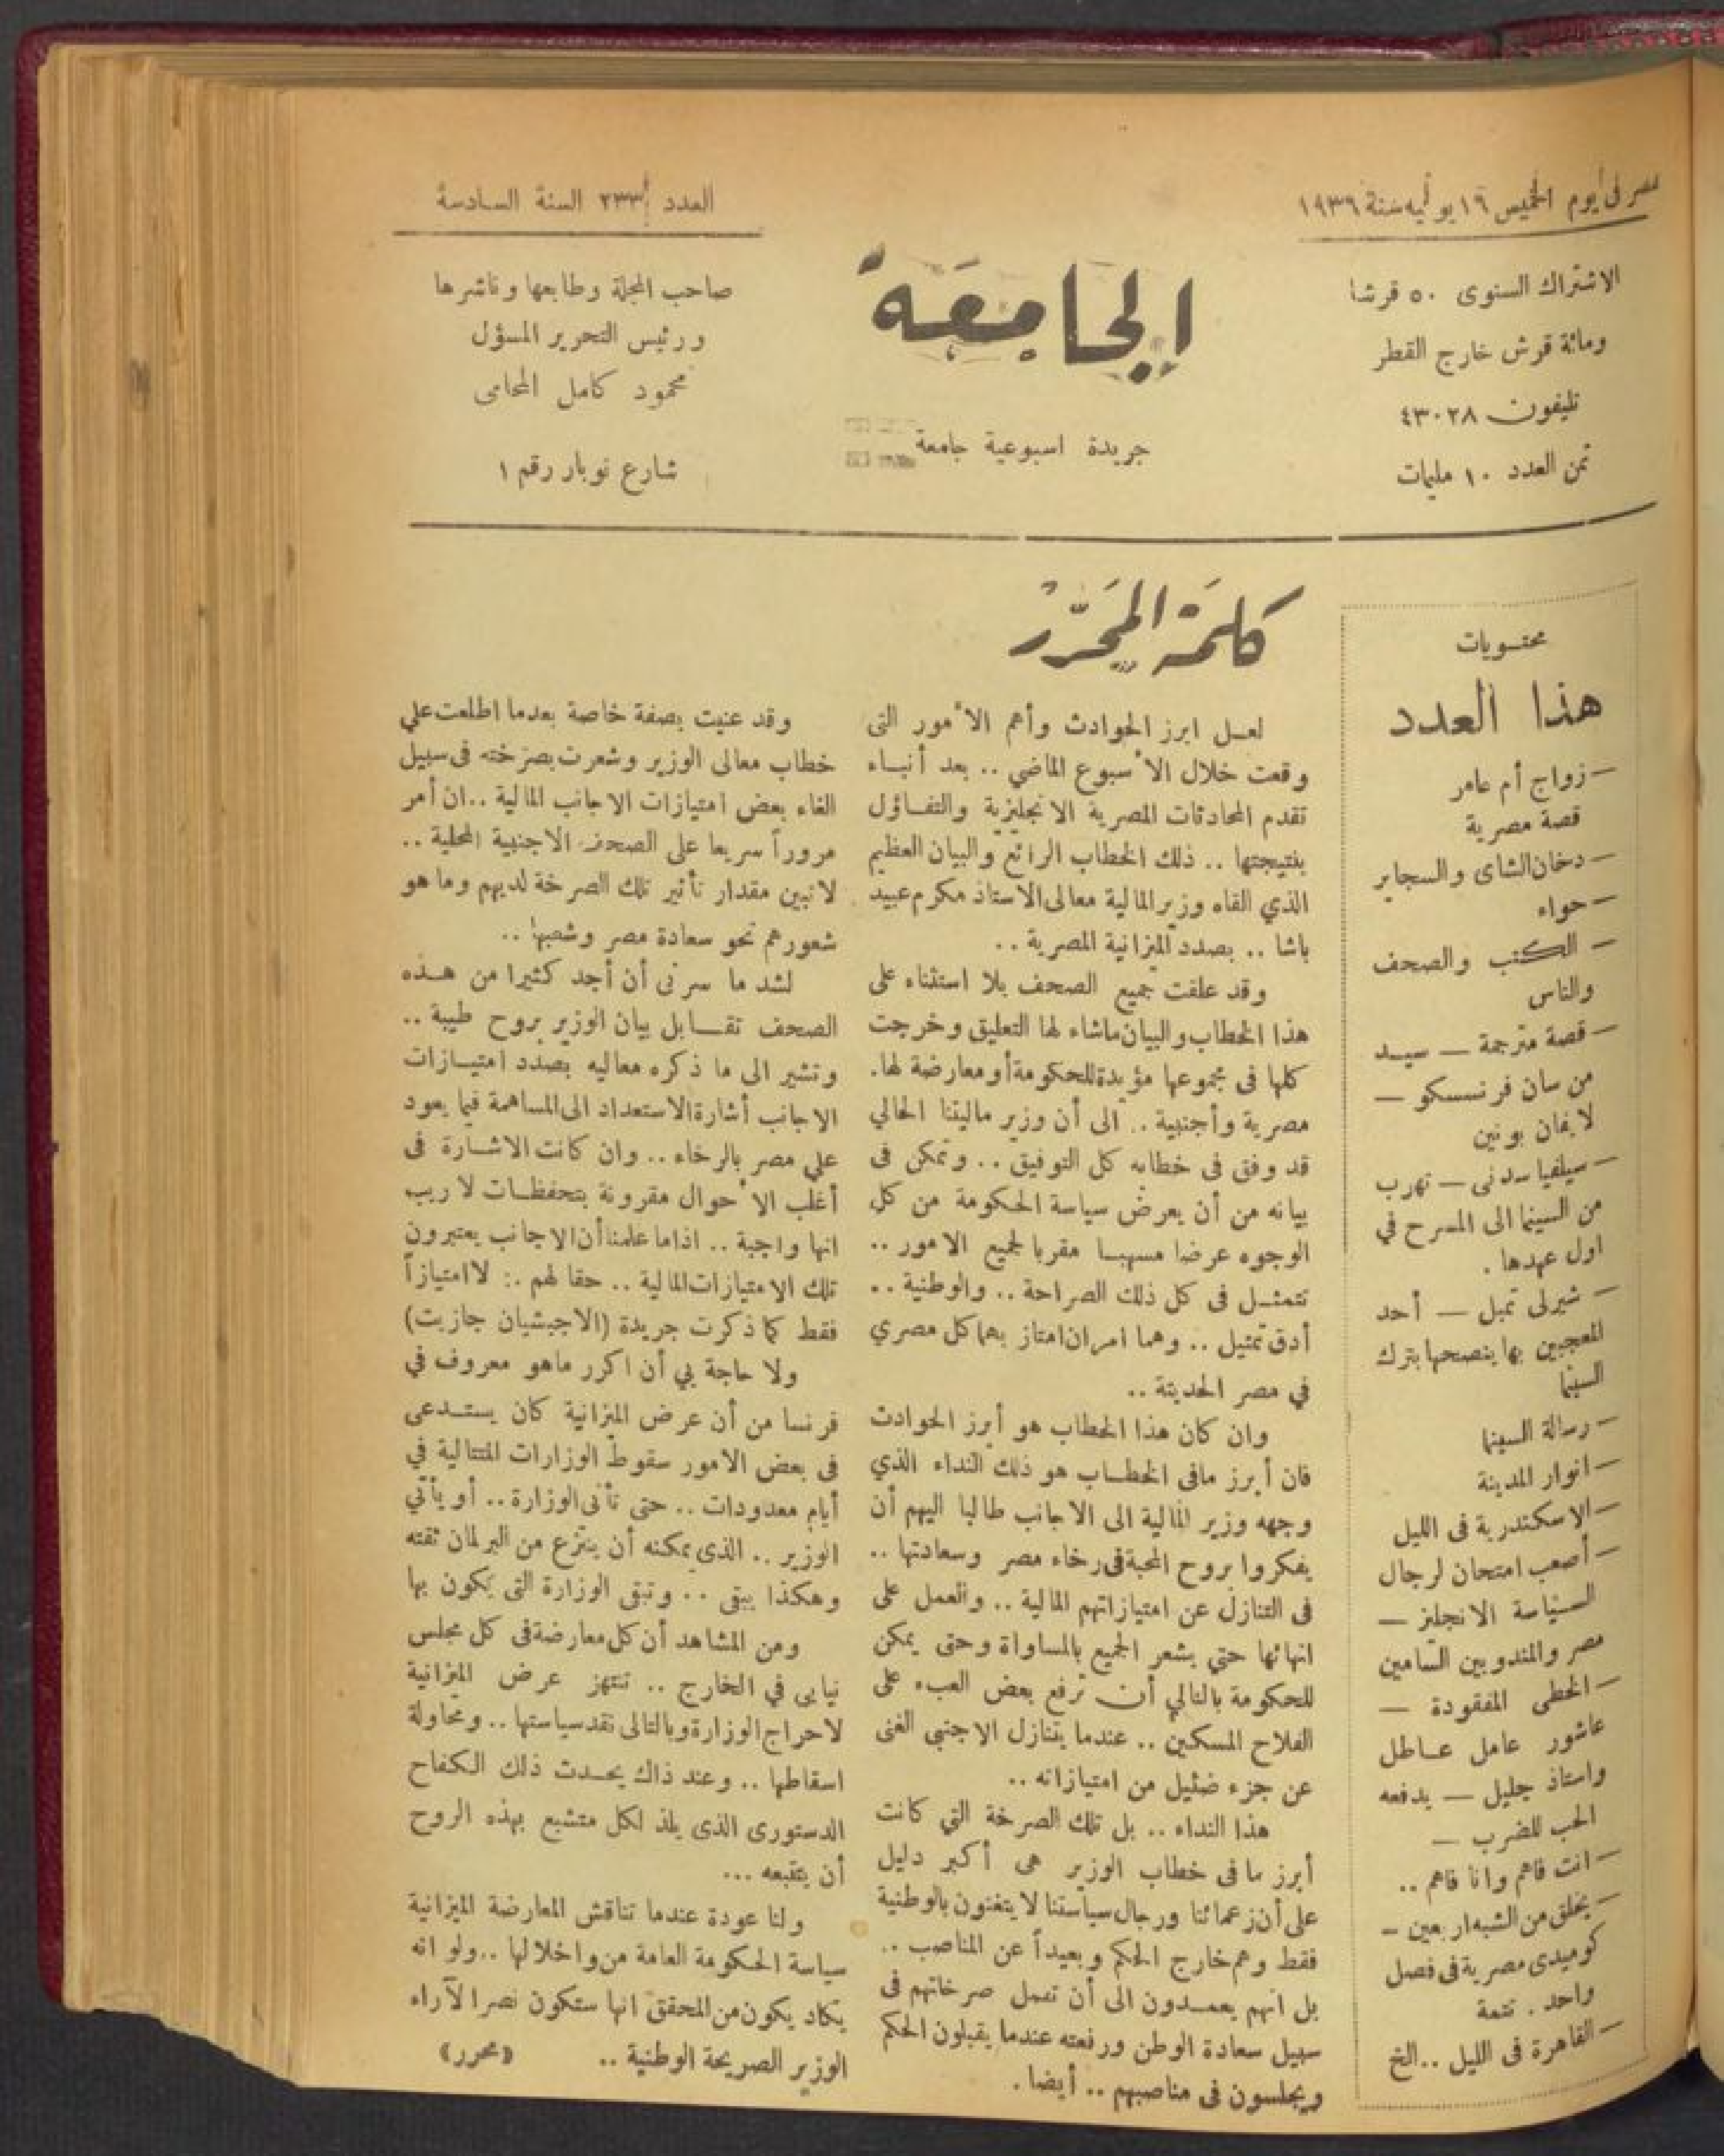 مصر في يوم الخميس ١٦ يوليه سنة ١٩٣٦
العدد ٢٣٣ السنة السادسة
الاشتراك السنوى ٥٠ قرشا
ومائة قرش خارج القطر
تليفون ٤٣٠٢٨
ثمن العدد ١٠ مليمات
الجامعة
جريدة اسبوعية جامعة
صاحب المجلة وطابعها وناشرها
ورئيس التحرير المسؤل
محمود كامل المحامى
شارع نوبار رقم ١
محتويات
هذا العدد
– زواج أم عامر
قصة مصرية
– دخان الشاى والسجاير
– حواء
– الكتب والصحف
والناس
– قصة مترجمة – سيد
من سان فرنسسكو –
لايفان بونين
– سيلفيا سدنى – تهرب
من السينما الى المسرح في
اول عهدها .
– شيرلى تمبل – أحد
المعجبين بها ينصحها بترك
السينما
– رسالة السينما
– انوار المدينة
– الاسكندرية فى الليل
– أصعب امتحان لرجال
السياسة الانجليز –
مصر والمندوبين السامين
– الخطى المفقودة –
عاشور عامل عاطل
واستاذ جليل – يدفعه
الحب للضرب –
– انت فاهم وانا فاهم ..
– يخلق من الشبه اربعين –
كوميدى مصرية فى فصل
واحد . تتمة
– القاهرة فى الليل .. الخ
كلمة المحرر
لعل ابرز الحوادث وأهم الأمور التى
وقعت خلال الأسبوع الماضي .. بعد أنباء
تقدم المحادثات المصرية الانجليزية والتفاؤل
بنتيجتها .. ذلك الخطاب الرائع والبيان العظيم
الذي القاه وزير المالية معالى الاستاذ مكرم عبيد
باشا .. بصدد الميزانية المصرية ..
وقد علقت جميع الصحف بلا استثناء على
هذا الخطاب والبيان ماشاء لها التعليق وخرجت
كلها فى مجموعها مؤيدة للحكومة أو معارضة لها.
مصرية وأجنبية .. الى أن وزير ماليتنا الحالي
قد وفق فى خطابه كل التوفيق .. وتمكن فى
بيانه من أن يعرض سياسة الحكومة من كل
الوجوه عرضا مسهبا مقربا لجميع الامور ..
تتمثل فى كل ذلك الصراحة .. والوطنية ..
أدق تمثيل .. وهما امران امتاز بهما كل مصري
في مصر الحديثة ..
وان كان هذا الخطاب هو أبرز الحوادث
فان أبرز مافى الخطاب هو ذلك النداء الذي
وجهه وزير المالية الى الاجانب طالبا اليهم أن
يفكروا بروح المحبة فى رخاء مصر وسعادتها ..
فى التنازل عن امتيازاتهم المالية .. والعمل على
انهائها حتي يشعر الجميع بالمساواة وحتى يمكن
للحكومة بالتالي أن ترفع بعض العبء على
الفلاح المسكين .. عندما يتنازل الاجنبي الغنى
عن جزء ضئيل من امتيازاته ..
هذا النداء .. بل تلك الصرخة التي كانت
أبرز مافى خطاب الوزير هى أكبر دليل
على أن زعمائنا ورجال سياستنا لا يتغنون بالوطنية
فقط وهم خارج الحكم وبعيداً عن المناصب ..
بل انهم يعمدون الى أن تعمل صرخاتهم فى
سبيل سعادة الوطن ورفعته عندما يقبلون الحكم
ويجلسون فى مناصبهم .. أيضا .
وقد عنيت بصفة خاصة بعدما اطلعت علي
خطاب معالى الوزير وشعرت بصرخته فى سبيل
الغاء بعض امتيازات الاجانب المالية .. ان أمر
مروراً سريعا على الصحف الاجنبية المحلية ..
لاتبين مقدار تأثير تلك الصرخة لديهم وما هو
شعورهم نحو سعادة مصر وشعبها ..
لشد ما سرنى أن أجد كثيرا من هذه
الصحف تقابل بيان الوزير بروح طيبة ..
وتشير الى ما ذكره معاليه بصدد امتيازات
الاجانب أشارة الاستعداد الى المساهمة فيما يعود
علي مصر بالرخاء .. وان كانت الاشارة فى
أغلب الأحوال مقرونة بتحفظات لا ريب
انها واجبة .. اذا ما علمنا أن الاجانب يعتبرون
تلك الامتيازات المالية .. حقا لهم .: لا امتيازاً
فقط كما ذكرت جريدة (الاجبشيان جازيت)
ولا حاجة بي أن اكرر ماهو معروف في
فرنسا من أن عرض الميزانية كان يستدعى
فى بعض الامور سقوط الوزارات المتتالية في
أيام معدودات .. حتى تأتى الوزارة .. أو يأتي
الوزير .. الذى يمكنه أن ينتزع من البرلمان ثقته
وهكذا يبقى .. وتبقى الوزارة التى يكون بها
ومن المشاهد أن كل معارضة فى كل مجلس
نيابى في الخارج .. تنتهز عرض الميزانية
لاحراج الوزارة وبالتالى نقد سياستها .. ومحاولة
اسقاطها .. وعند ذاك يحدث ذلك الكفاح
الدستورى الذى يلذ لكل متشبع بهذه الروح
أن يتتبعه ...
ولنا عودة عندما تناقش المعارضة الميزانية
سياسة الحكومة العامة من واخلالها .. ولو انه
يكاد يكون من المحقق انها ستكون نصرا لآراء
الوزير الصريحة الوطنية .. «محرر»